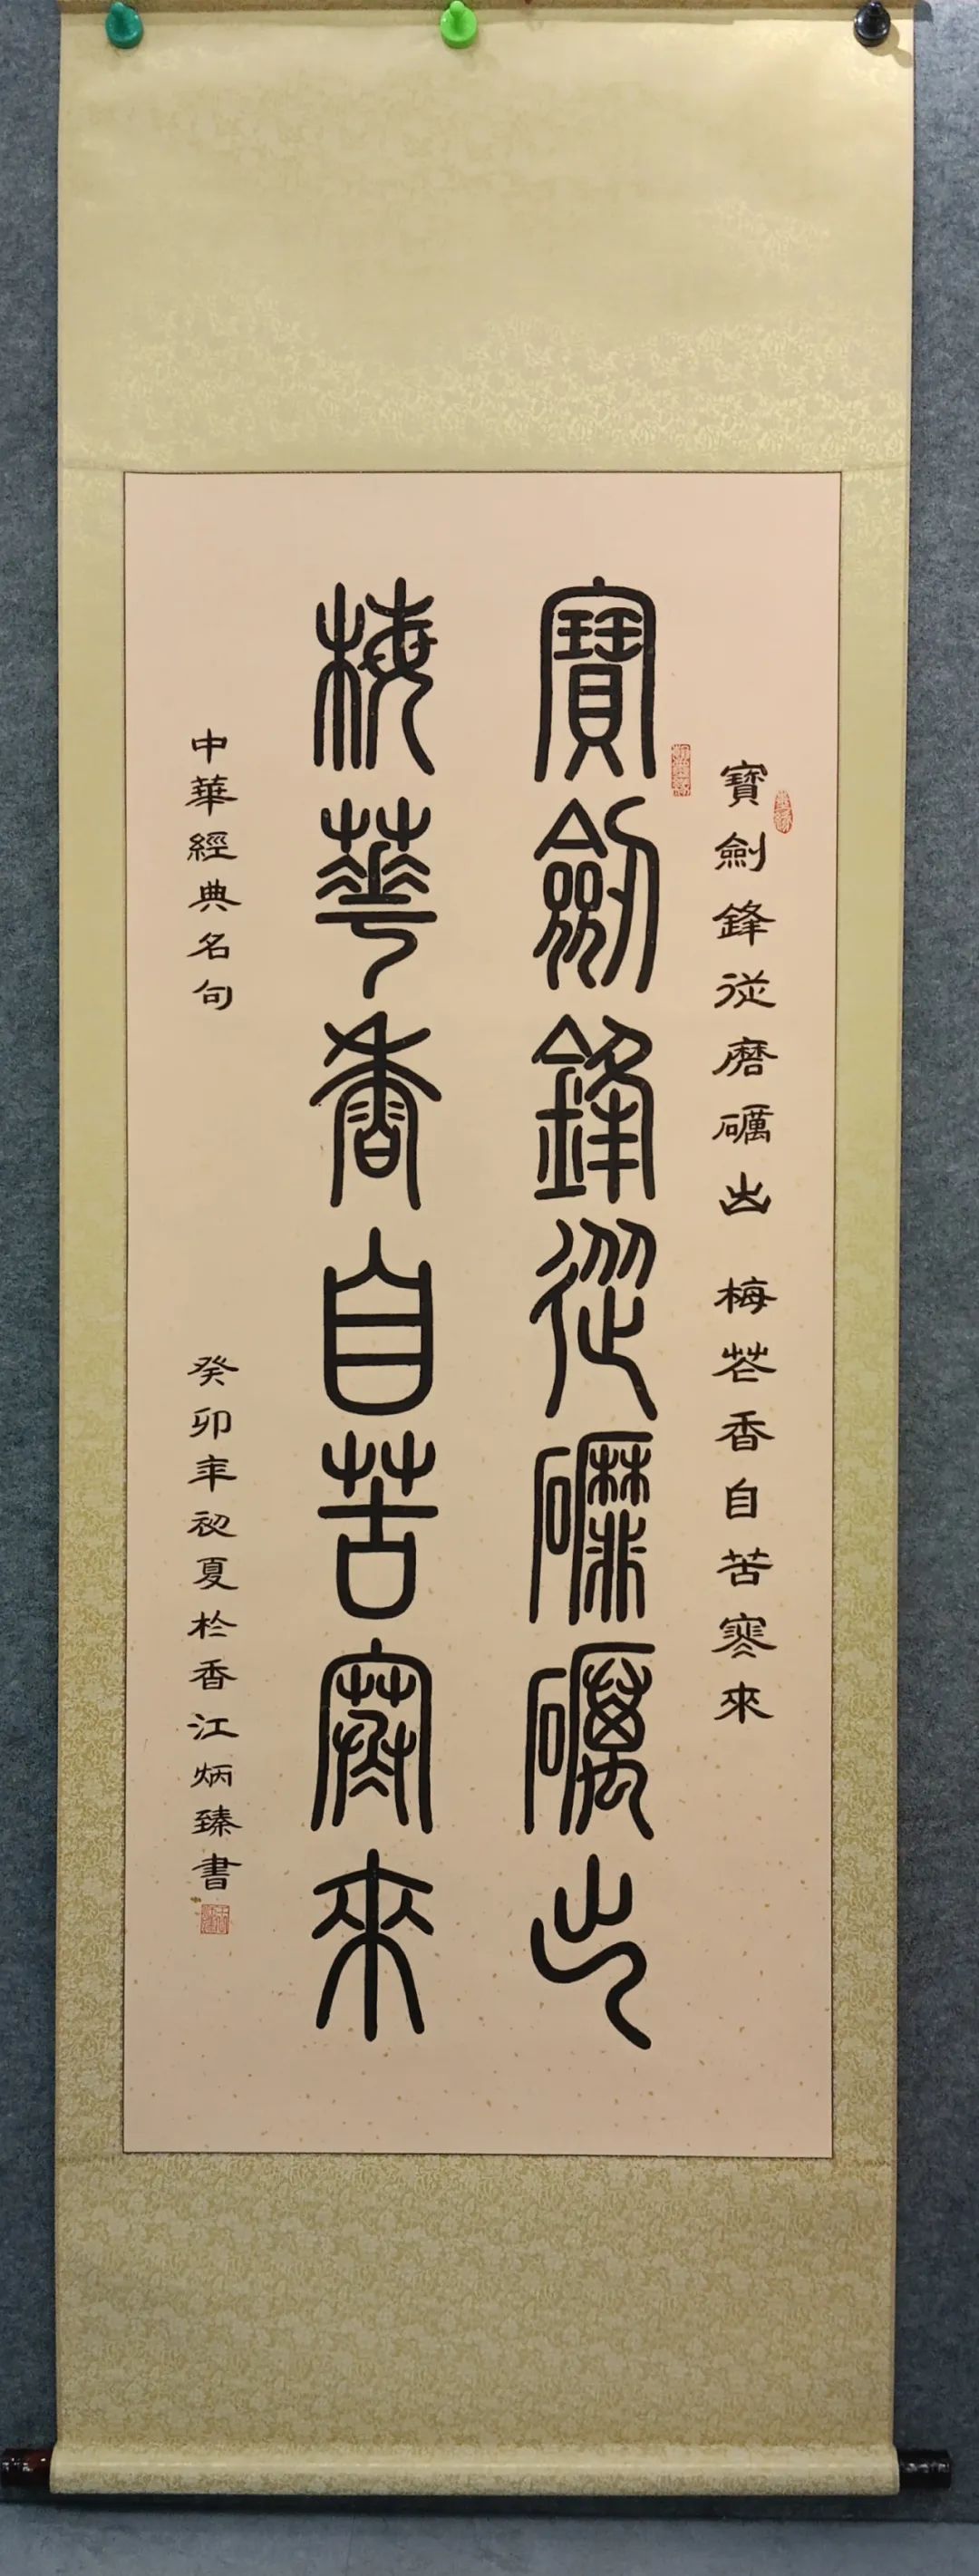 寶劍鋒從磨礪出 梅花香自苦寒來
寶劒鋒從礳礪出
梅華香自苦寒來
中華經典名句
癸卯年初夏於香江炳臻書